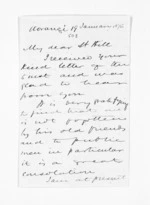 19 January 1876
My dear St Hill
I received your
kind letter of the
and was
glad to hear
from you
It is very
to find that
is not forgotten
by his old friends
and to public
men in particular
it is a great
consolation.
I am at present